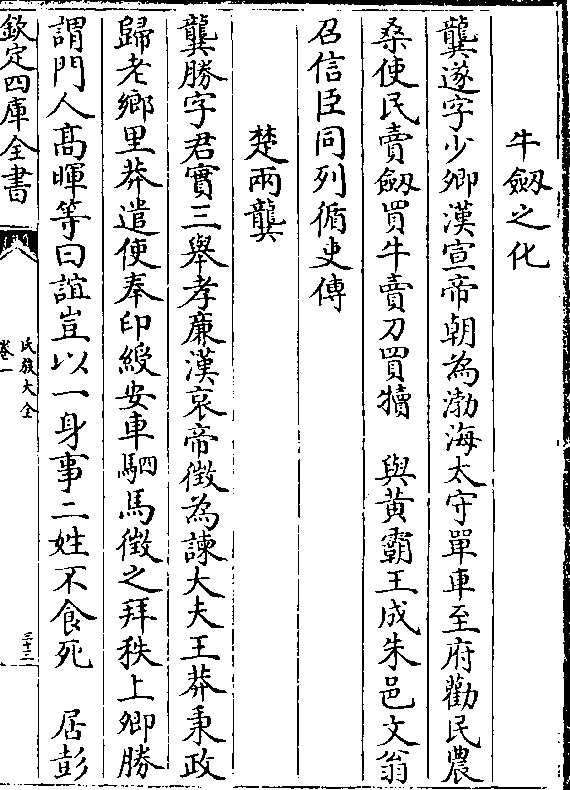 牛劒之化
龔遂字少卿漢宣帝朝為渤海太守單車至府勸民農
桑使民賣劒買牛賣刀買犢　與黃霸王成朱邑文翁
召信臣同列循吏傳
楚兩龔
龔勝字君實三舉孝廉漢哀帝徵為諫大夫王莽秉政
歸老鄉里莽遣使奉印綬安車駟馬徵之拜秩上卿勝
謂門人髙暉等曰誼豈以一身事二姓不食死　居彭
欽定四庫全書
氏族大全
卷一
三十三